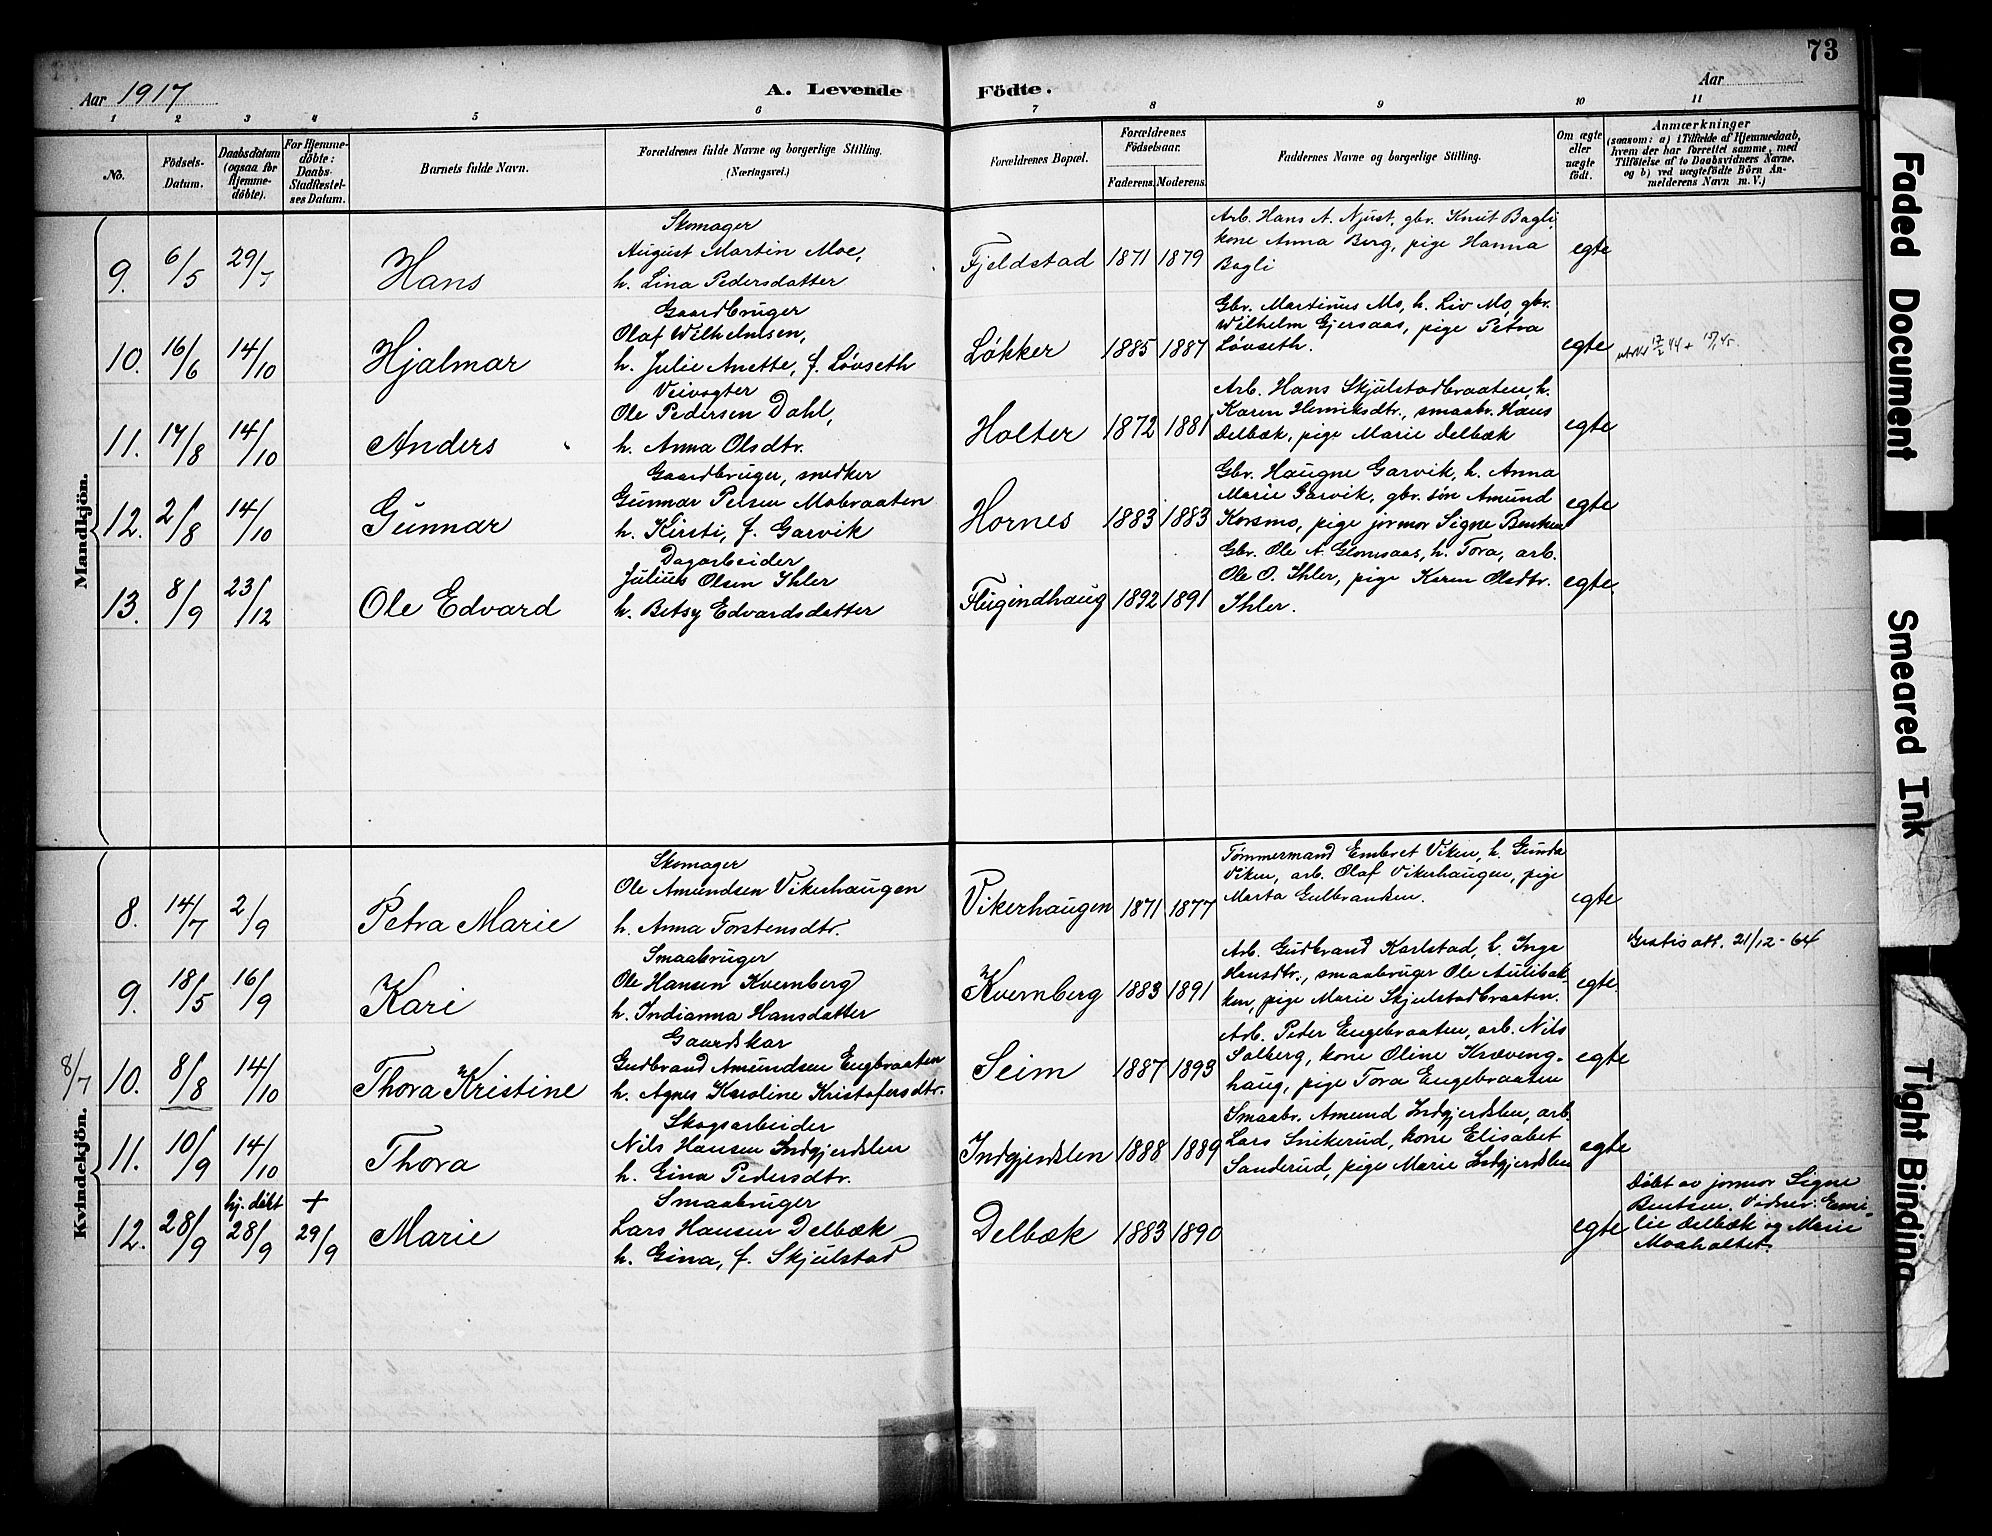 73
Aar 1917
A. Levende
Födte.
Aar
1 2 3 4 5 6 7 8 9 10 11
No.
Födsels-
Datum.
Daabsdatum
(ogsaa for
Hjemme-
döbte).
For Hjemme-
døbte:
Daabs-
Stadfæstel-
ses Datum.
Barnets fulde Navn.
Forældrenes fulde Navne og borgerlige Stilling.
(Næringsvei.)
Forældrenes Bopæl.
Forældrenes
Födselsaar.
Faderens. Moderens.
Faddernes Navne og borgerlige Stilling.
Om ægte
eller
uægte
født.
Anmærkninger
(saasom: a) i Tilfælde af Hjemmedaab,
hvem der har forrettet samme, med
Tilföielse af to Daabsvidners Navne.
og b) ved uægtefödte Börn An-
melderens Navn m. V.)
Mandkjön.
9. 6/5 29/7 Hans
Skomager
August Martin Moe,
h. Lina Pedersdatter
Fjeldstad 1871 1879
Arb. Hans A. Njust, gbr. Knut Bagli,
kone Anna Berg, pige Hanna
Bagli
egte
10. 16/6 14/10 Hjalmar
Gaardbruger
Olaf Wilhelmsen,
h. Julie Anette, f. Løvseth
Løkker 1885 1887
Gbr. Martinus Mo, h. Liv Mo, gbr.
Wilhelm Gjersaas, pige Petra
Løvseth.
egte
11. 17/8 14/10 Anders
Veivogter
Ole Pedersen Dahl,
h. Anna Olsdtr.
Holter 1872 1881
Arb. Hans Skjulstadbraaten, h.
Karen Henriksdtr., smaabr. Hans
Delbæk, pige Marie Delbæk
egte
12. 2/8 14/10 Gunnar
Gaardbruger, snedker
Gunnar Persen Mobraaten
h. Kirsti, f. Garvik
Hornes 1883 1883
Gbr. Haugne Garvik, h. Anna
Marie Garvik, gbr. søn Amund
Korsmo, pige jormor Signe Bentsen
egte
13. 8/9 23/12 Ole Edvard
Dagarbeider
Julius Olsen Ihler
h. Betsy Edvardsdatter
Flugindhaug 1892 1891
Gbr. Ole A. Glomsaas, h. Tora, arb.
Ole O. Ihler, pige Karen Olsdtr.
Ihler.
egte
Kvindekjön.
8. 14/7 2/9 Petra Marie
Skomager
Ole Amundsen Vikerhaugen
h. Anna Torstensdtr.
Vikerhaugen 1871 1877
Tømmermand Embret Viken, h. Gunda
Viken, arb. Olaf Vikerhaugen, pige
Marta Gulbrandsen.
egte
9. 18/5 16/9 Kari
Smaabruger
Ole Hansen Kvernberg
h. Indianna Hansdatter
Kvernberg 1883 1891
Arb. Gudbrand Karlstad, h. Inga
Hansdtr., smaabruger Ole Aulibak-
ken, pige Marie Skjulstadbraaten.
egte.
Gratis att. 21/12-64
8/7
10. 8/8 14/10 Thora Kristine
Gaardskar
Gudbrand Amundsen Engbraaten
h. Agnes Karoline Kristofersdtr.
Seim 1887 1893
Arb. Peter Engebraaten, arb. Nils
Solberg, kone Oline Kræveng-
haug, pige Tora Engebraaten
egte
11. 10/9 14/10 Thora
Skogsarbeider
Nils Hansen Indgjerdslen
h. Gina Pedersdtr.
Indgjerdslen 1888 1889
Smaabr. Amund Indgjerdslen, arb.
Lars Snikerud, kone Elisabet
Sanderud, pige Marie Indgjerdslen
egte
12. 28/9 hj. døbt 28/9 + 29/9 Marie
Smaabruger
Lars Hansen Delbæk
h. Gina, f. Skjulstad
Delbæk 1883 1890
egte
Døbt av jormor Signe
Bentsen. Vidner: Emi-
lie Delbæk og Marie
Moaholtet.
Faded Document
Smeared Ink
Tight Binding